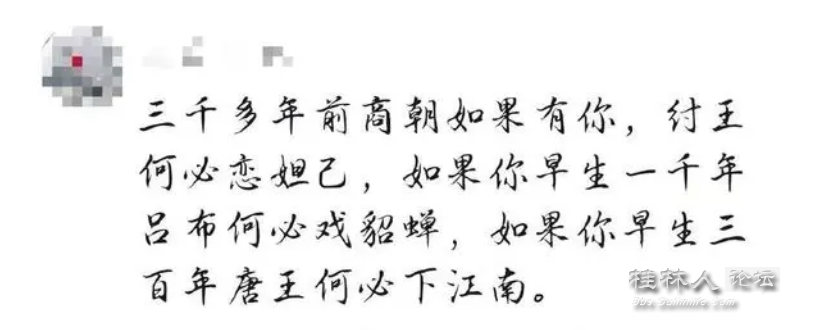 三千多年前商朝如果有你，纣王
何必恋妲己，如果你早生一千年
吕布何必戏貂蝉，如果你早生三
百年唐王何必下江南。
桂林人论坛
bbs.guilinlife.com